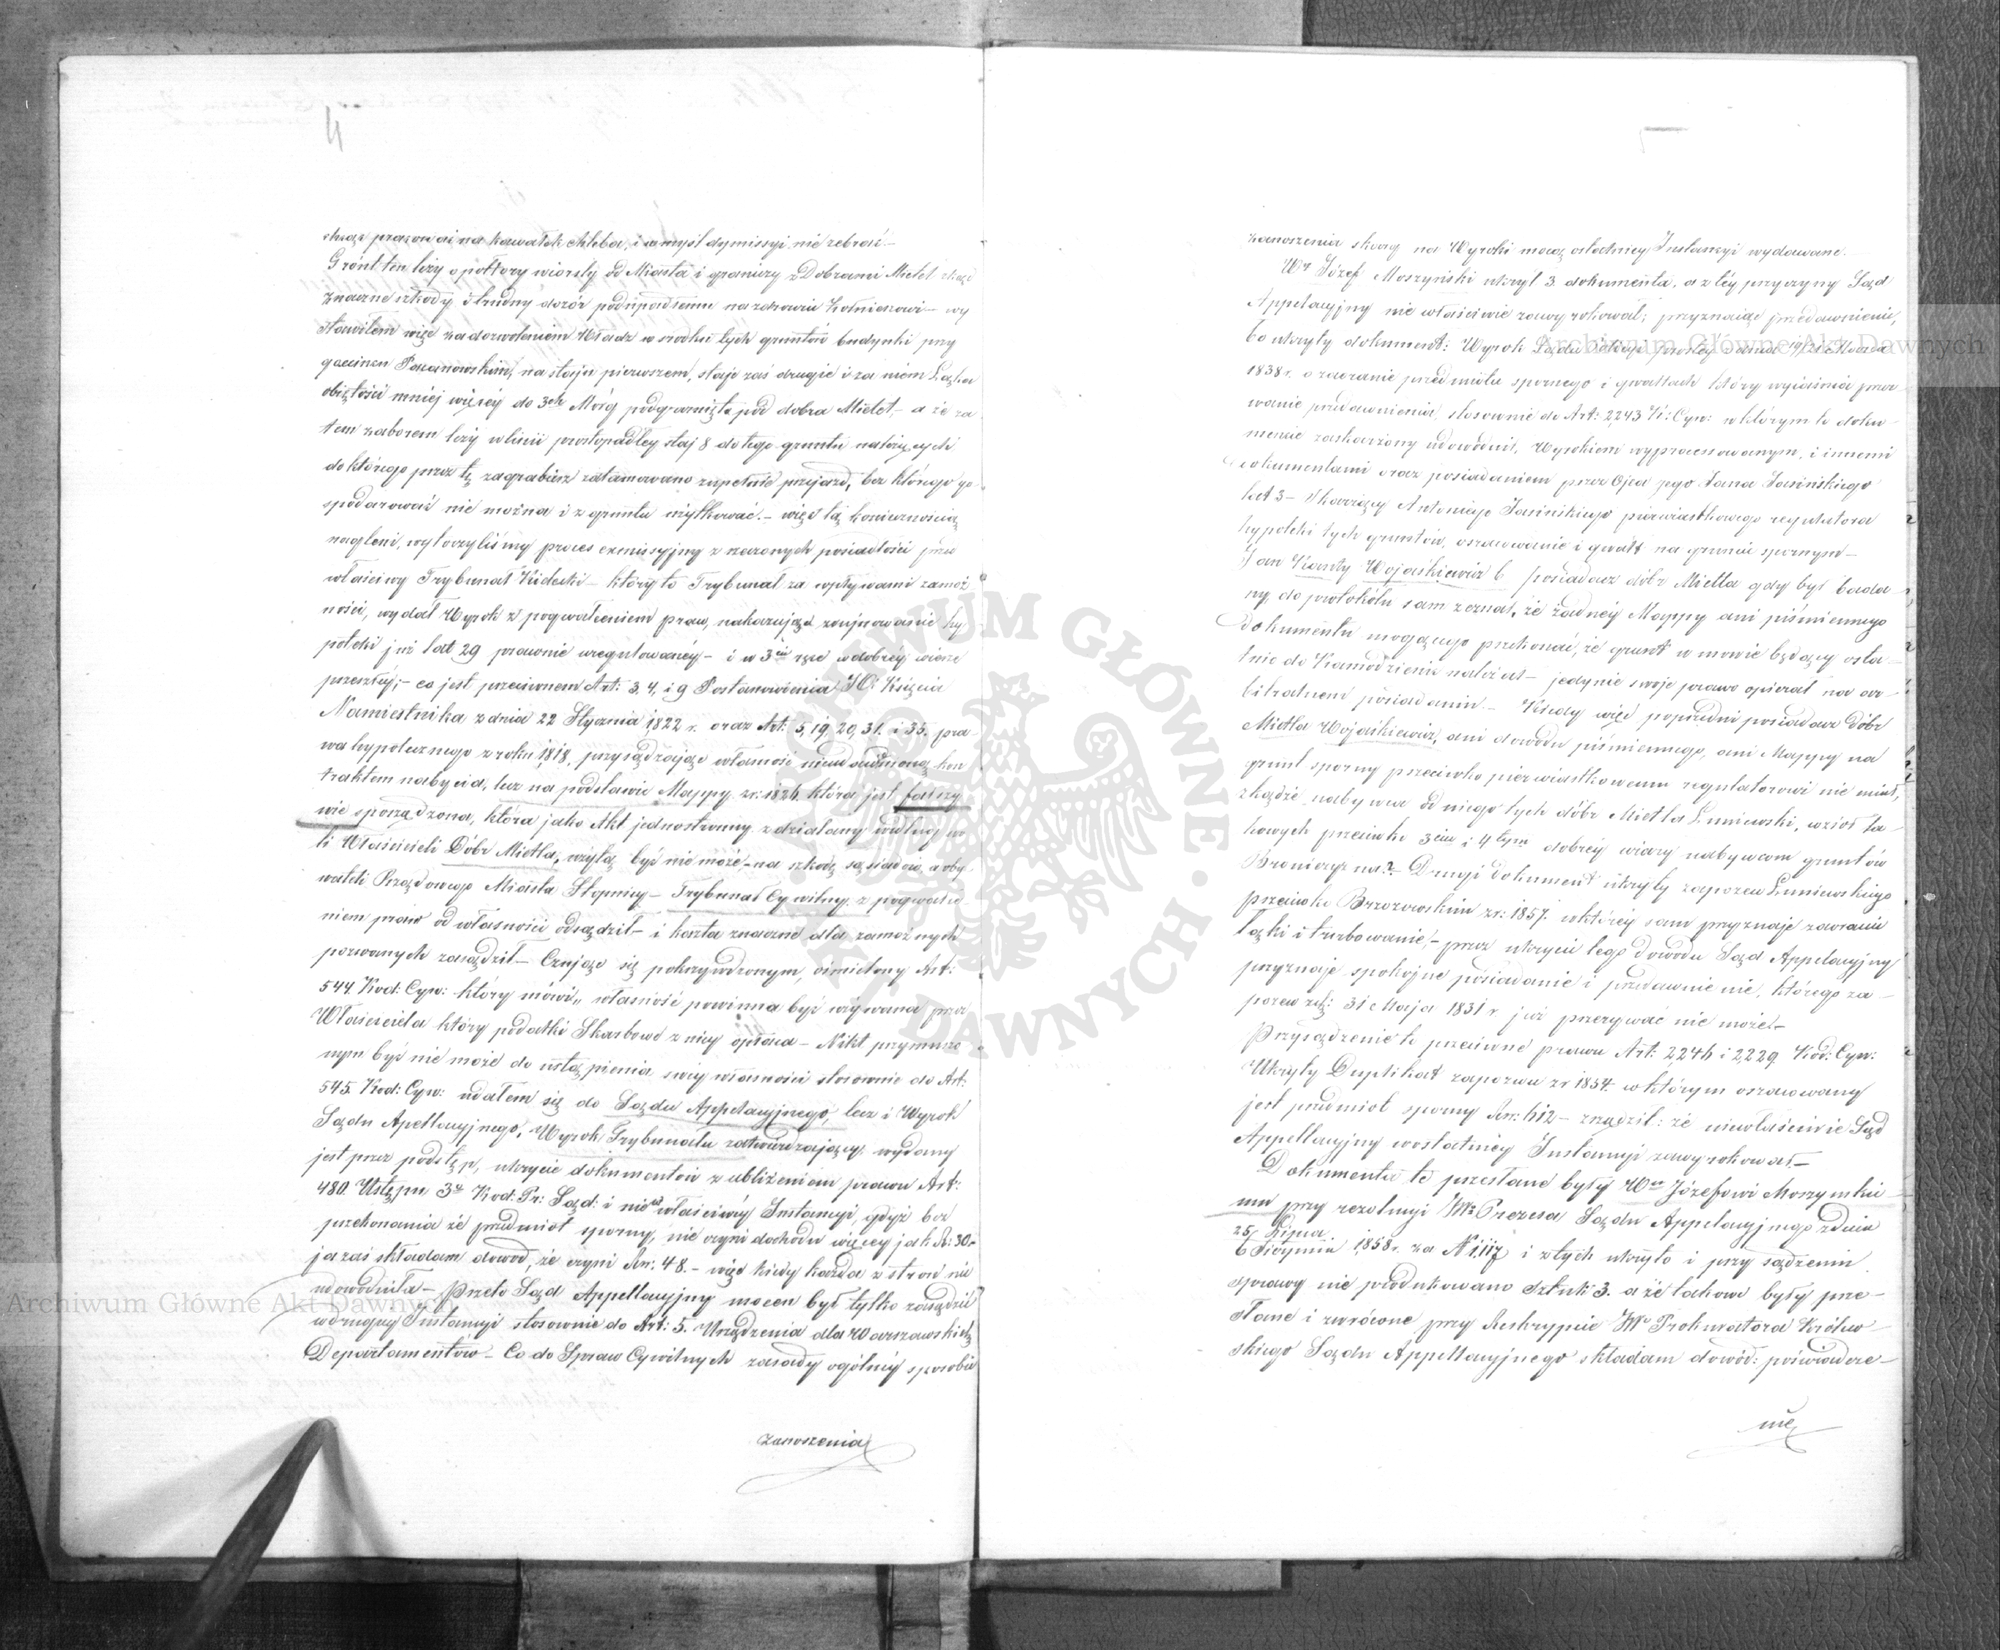 4
chcąc pracować na kawałek chleba, i w myśl dymissyi nie żebrać.—
Grónt ten leży o półtory wiorsty od Miasta i graniczy z Dobrami Mietel zkąd
znaczne szkody i trudny dozór podupadłemu na zdrowiu żołnierzowi— wy
stawiłem więc za dozwoleniem Władz w środku tych gruntów budynki przy
gościńcu Pacanowskim, na staju pierwszem, staje zaś drugie i za niem Łąka
obiętości mniéj więcéj do 3ch Mórg podgarnięta pod dobra Mietel,— a że za
tem zaborem leży w linii prostopadłey staj 8 do tego gruntu należących
do którego przez tę zagrabież zatamowano zupełnie przejazd, bez którego go-
spodarować nie można i z gruntu użytkować.— więc tą koniecznością
nagleni, wytoczyliśmy proces exmissyjny z rzeczonych posiadłości przed
właściwy Trybunał Kielecki— który to Trybunał za wpływami zamoż
ności, wydał Wyrok z pogwałceniem praw, nakazując zrujnowanie hy
poteki już lat 29 prawnie uregulowanéy— i w 3cie ręce w dobréy wierze
przeszłéj;— co jest przeciwnem Art: 3. 4. i 9 Postanowienia JO: Księcia
Namiestnika z dnia 22 Stycznia 1822 r. oraz Art: 5, 19, 20, 31. i 35. pra-
wa hypotecznego z roku 1818, przysądzając własność nieudowodnioną kon
traktem nabycia, lecz na podstawie Mappy z r: 1826 która jest fałszy
wie sporządzona, która jako Akt jednostronny zdziałany według wo
li Właścicieli Dóbr Mietla, użytą być nie może,— na szkodę sąsiadów, a oby
wateli Rządowego Miasta Stopnicy— Trybunał Cywilny z pogwałce
niem praw od własności odsądził— i koszta znaczne dla zamożnych
pozwanych zasądził— Czując się pokrzywdzonym, ośmielony Art:
544 Kod: Cyw: który mówi „własność powinna być używana przez
Właściciela który podatki Skarbowe z niey opłaca— Nikt przymuszo
nym być nie może do ustąpienia swéy własności stosownie do Art:
545. Kod: Cyw: udałem się do Sądu Appelacyjnego, lecz i Wyrok
Sądu Apellacyjnego, Wyrok Trybunału zatwierdzający, wydany
jest przez podstęp, ukrycie dokumentów z ubliżeniem prawu Art:
480. Ustępu 3o Kod: Pr: Sąd: i nie właściwéy Instancyi, gdyż bez
przekonania że przedmiot sporny, nie czyni dochodu więcey jak R: 30.—
ja zaś składam dowód, że czyni Rs: 48.— więc kiedy każda z stron nie
udowodniła— Przeto Sąd Appellacyjny mocen był tylko zasądzić
w drugiey Instancyi stosownie do Art: 5. Urządzenia dla Warszawskich
Departamentów— Co do Spraw Cywilnych zasady ogólnéy sposobu
zanoszenia
zanoszenia skarg na Wyroki mocą ostatniey Instancyi wydawane.—
Wy Józef Moszyński ukrył 3. dokumenta, a z téy przyczyny Sąd
Appelacyjny nie właściwie zawyrokował; przyznając przedawnienie,
bo ukryty dokument: Wyrok Sądu Policyi prostéy z dnia 19/31 Marca
1838 r. o zaoranie przedmiotu spornego i gwałtach który wyjaśnia przer
wanie przedawnienia stosownie do Art: 2243 K: Cyw: w którym to doku
mencie zaskarżony udowodnił, Wyrokiem wyprocessowanym, i innemi
dokumentami oraz posiadaniem przez Ojca jego Jana Jasińskiego
lat 3— Skarżący Antoniego Jasińskiego pierwiastkowego regulatora
hypoteki tych gruntów, oszacowanie i gwałt na gruncie spornym—
Jan Kanty Wojaśkiewicz b. posiadacz dóbr Mietla gdy był bada
ny, do protokółu sam zeznał, że żadnéy Mappy ani piśmiennego
dokumentu mogącego przekonać, że grunt w mowie będący osta—
tnie do Kamedzienia należał— jedynie swoje prawo opierał na ar-
bitralnem posiadaniu— Kiedy więc poprzedni posiadacz dóbr
Mietla Wojaśkiewicz, ani dowodu piśmiennego, ani Mappy na
grunt sporny przeciwko pierwiastkowemu regulatorowi nie miał,
zkądże nabywca od niego tych dóbr Mietla Łuniewski, wziął ta
kowych przeciwko 3cim i 4tym dobréy wiary nabywcom gruntów
Bronicz na? Drugi dokument ukryty zapozew Łuniewskiego
przeciwko Brzozowskim z r: 1857. w któréy sam przyznaje zaoranie
łąki i turbowanie,— przez ukrycie tego dowodu Sąd Appelacyjny
przyznaje spokojne posiadanie i przedawnienie, którego za—
pozew zd: 31 Maja 1831 r. już przerywać nie może.—
Przysądzenie to przeciwne prawu Art: 2246 i 2229 Kod: Cyw:
Ukryty Duplikat zapozwu z r 1854. w którym oszacowany
jest przedmiot sporny Rs: 612— zrządził: że niewłaściwie Sąd
Appellacyjny w ostatniéy Instancyi zawyrokował—
Dokumenta te przesłane były Wmu Józefowi Moszyńskie—
mu przy rezolucyi JWo Prezesa Sądu Appelacyjnego z dnia
25/ Lipca
6 Sierpnia 1858 r. za N 1117 i z tych ukryto i przy sądzeniu
sprawy nie produkowano Sztuk 3. a że takowe były prze—
słane i zwrócone przy Reskrypcie JWo Prokuratora Królew—
skiego Sądu Appellacyjnego składam dowód: poświadcze—
nie
Archiwum Główne Akt Dawnych
Archiwum Główne Akt Dawnych
ARCHIWUM GŁÓWNE AKT DAWNYCH